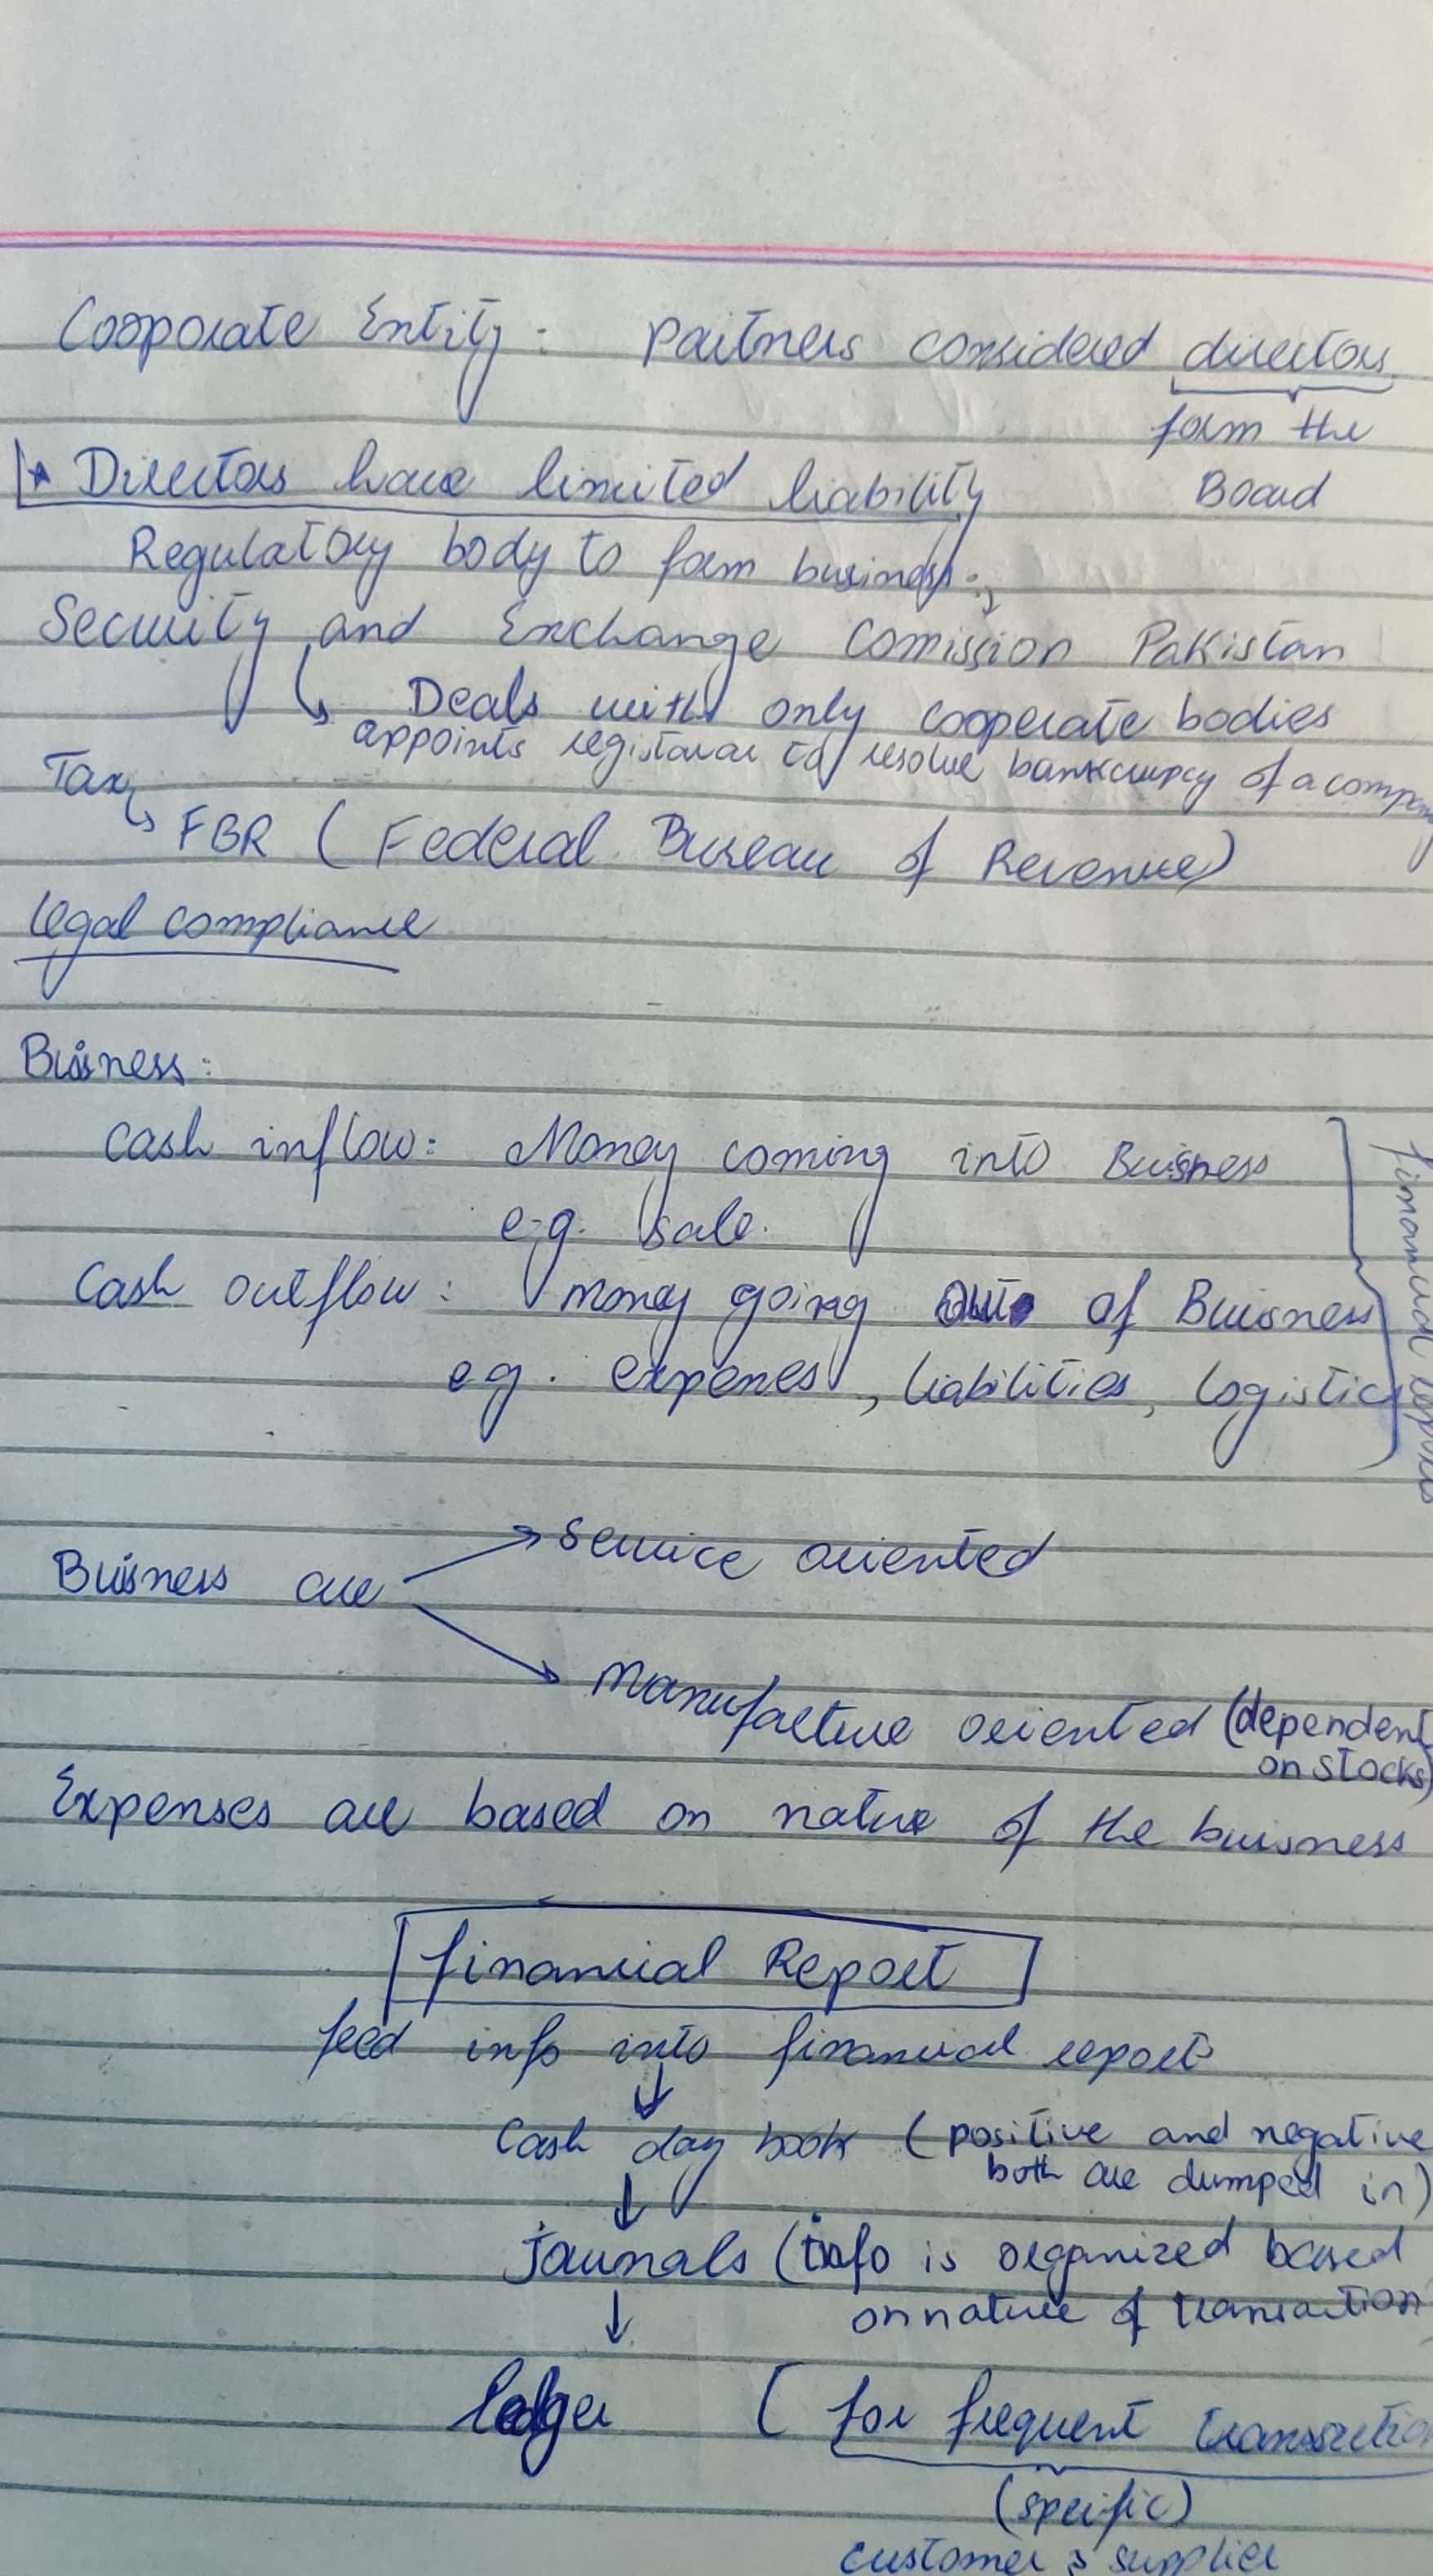 Cooporate Entity : Partners considered directors
form the
Board
* Directors have limited liability
Regulatory body to form business :
Security and Exchange Comission Pakistan
Deals with only cooperate bodies
appoints registarar to resolve bankcrupcy of a company
Tax
FBR (Federal Bureau of Revenue)
legal compliance
Buisness :
Cash inflow : Money coming into Buisness
e.g. sale.
Cash outflow : money going out of Buisness
eg. expenes, liabilities, logistics
financial reports
Buisness are
Service oriented
Manufacture oriented (dependent
on stocks)
Expenses are based on nature of the buisness
financial Report
feed info into financial reports
Cash day book (positive and negative
both are dumped in)
Journals (info is organized based
on nature of transaction
ledger ( for frequent transaction
(specific)
customer & supplier